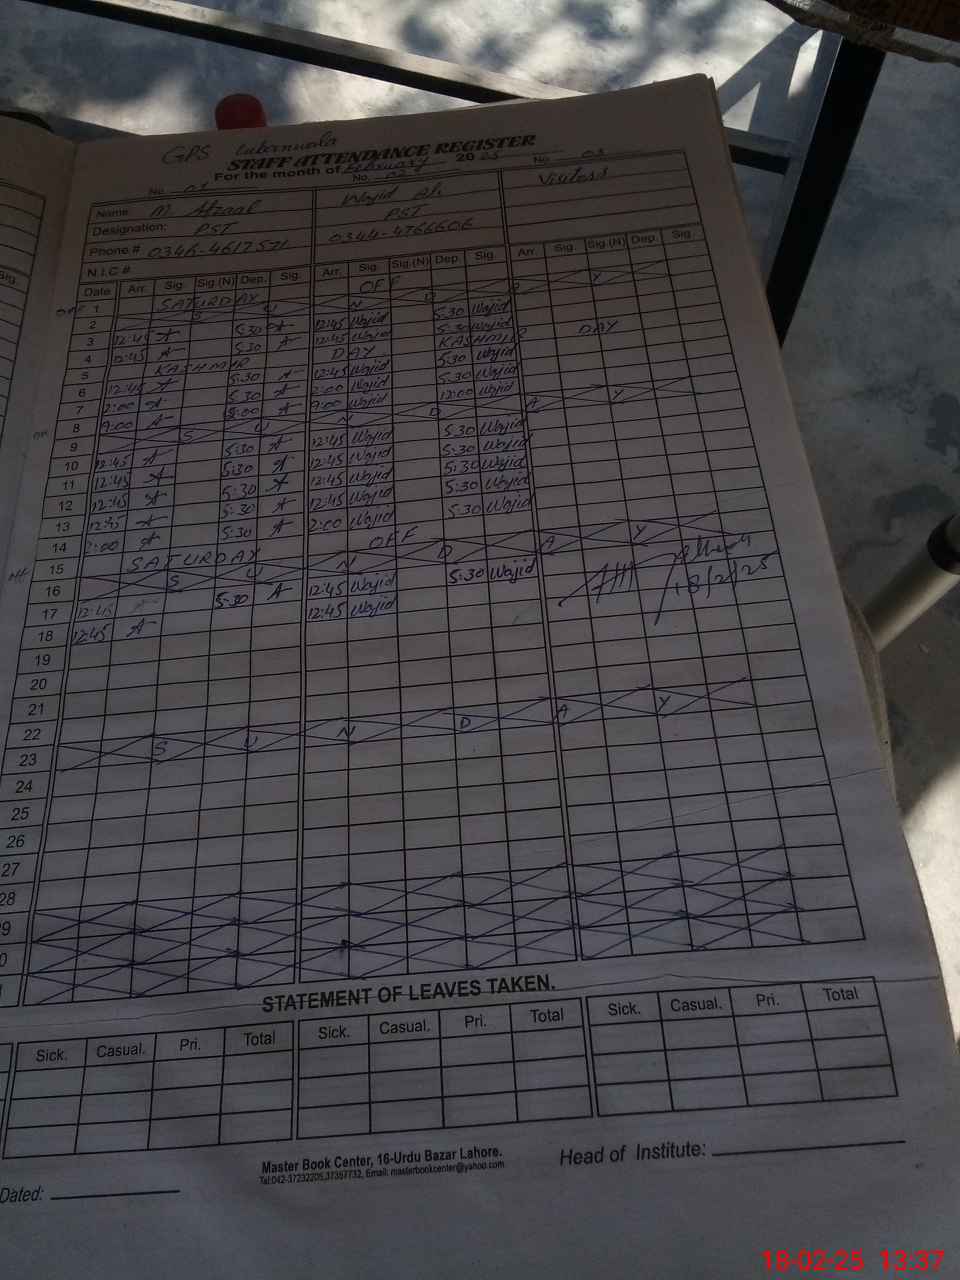 GPS
STAFF ATTENDANCE REGISTER
For the month of February 2025
No. 01 No. 02 No. 03
Name: M. Afzaal Wajid Ali Visitors
Designation: PST PST
Phone # 0346-4617571 0344-4766606
N.I.C #
Date Arr. Sig. Sig.(N) Dep. Sig. Arr. Sig. Sig.(N) Dep. Sig Arr. Sig. Sig.(N) Dep. Sig.
OFF 1 SATURDAY OFF
2 S U N D A Y
3 12:45 A 5:30 A 12:45 Wajid 5:30 Wajid
4 12:45 A 5:30 A 12:45 Wajid 5:30 Wajid
5 KASHMIR DAY KASHMIR DAY
6 12:45 A 5:30 A 12:45 Wajid 5:30 Wajid
7 2:00 A 5:30 A 2:00 Wajid 5:30 Wajid
8 9:00 A 9:00 Wajid 12:00 Wajid
9 S U N D A Y
10 12:45 A 5:30 A 12:45 Wajid 5:30 Wajid
11 12:45 A 5:30 A 12:45 Wajid 5:30 Wajid
12 12:45 A 5:30 A 12:45 Wajid 5:30 Wajid
13 12:45 A 5:30 A 12:45 Wajid 5:30 Wajid
14 2:00 A 5:30 A 2:00 Wajid 5:30 Wajid
15 SATURDAY OFF
16 S U N D A Y
17 12:45 A 5:30 A 12:45 Wajid 5:30 Wajid 18/2/25
18 12:45 A 12:45 Wajid
19
20
21
22
23 S U N D A Y
24
25
26
27
28
9
0
STATEMENT OF LEAVES TAKEN.
Sick. Casual. Pri. Total Sick. Casual. Pri. Total Sick. Casual. Pri. Total
Master Book Center, 16-Urdu Bazar Lahore.
Tel:042-37232205,37357732, Email: masterbookcenter@yahoo.com
Head of Institute:
Dated:
18-02-25 13:37